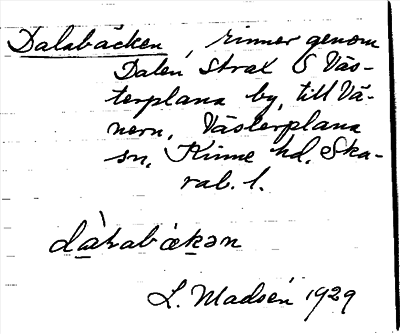 Dalabäcken, rinner genom
Dalen strax S Väs-
terplana by, till Vä-
nern, Västerplana
sn, Kinne hd. Ska-
rab. l.
L. Madsén 1929